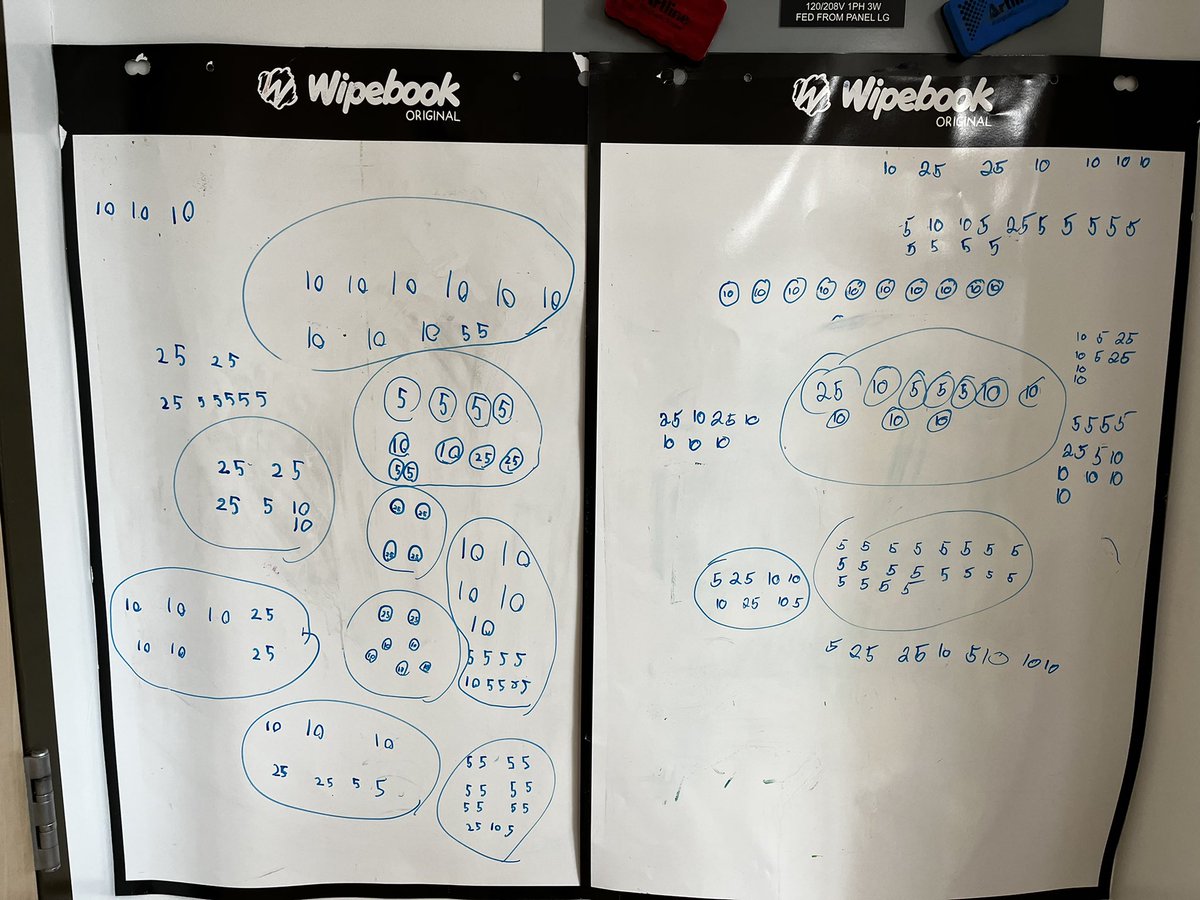 120/208V 1PH 3W
FED FROM PANEL LG
Artline
Artline
Wipebook
ORIGINAL
10 10 10
10 10 10 10 10 10
10 10 10 5 5
25 25
25 5 5 5 5 5
5 5 5 5
10 10 25 25
5 5
25 25
25 5 10
10
25 25
25 25
10 10
10 10
10
5 5 5 5
10 5 5 5 5
10 10 10 25
10 10 25
25 25
10 10
10 10 10
10 10 10
25 25 5 5
5 5 5 5
5 5 5 5
5 5 5 5
25 10 5
Wipebook
ORIGINAL
10 25 25 10 10 10 10
5 10 10 5 25 5 5 5 5 5 5
5 5 5 5
10 10 10 10 10 10 10 10 10 10
10 5 25
10 5 25
10
10
25 10 5 5 5 10 10
10 10 10
25 10 25 10
10 10 10
5 5 5 5
25 5 10
10 10 10
10
5 25 10 10
10 25 10 5
5 5 5 5 5 5 5 5
5 5 5 5 5 5 5 5
5 5 5 5
5 25 25 10 5 10 10 10